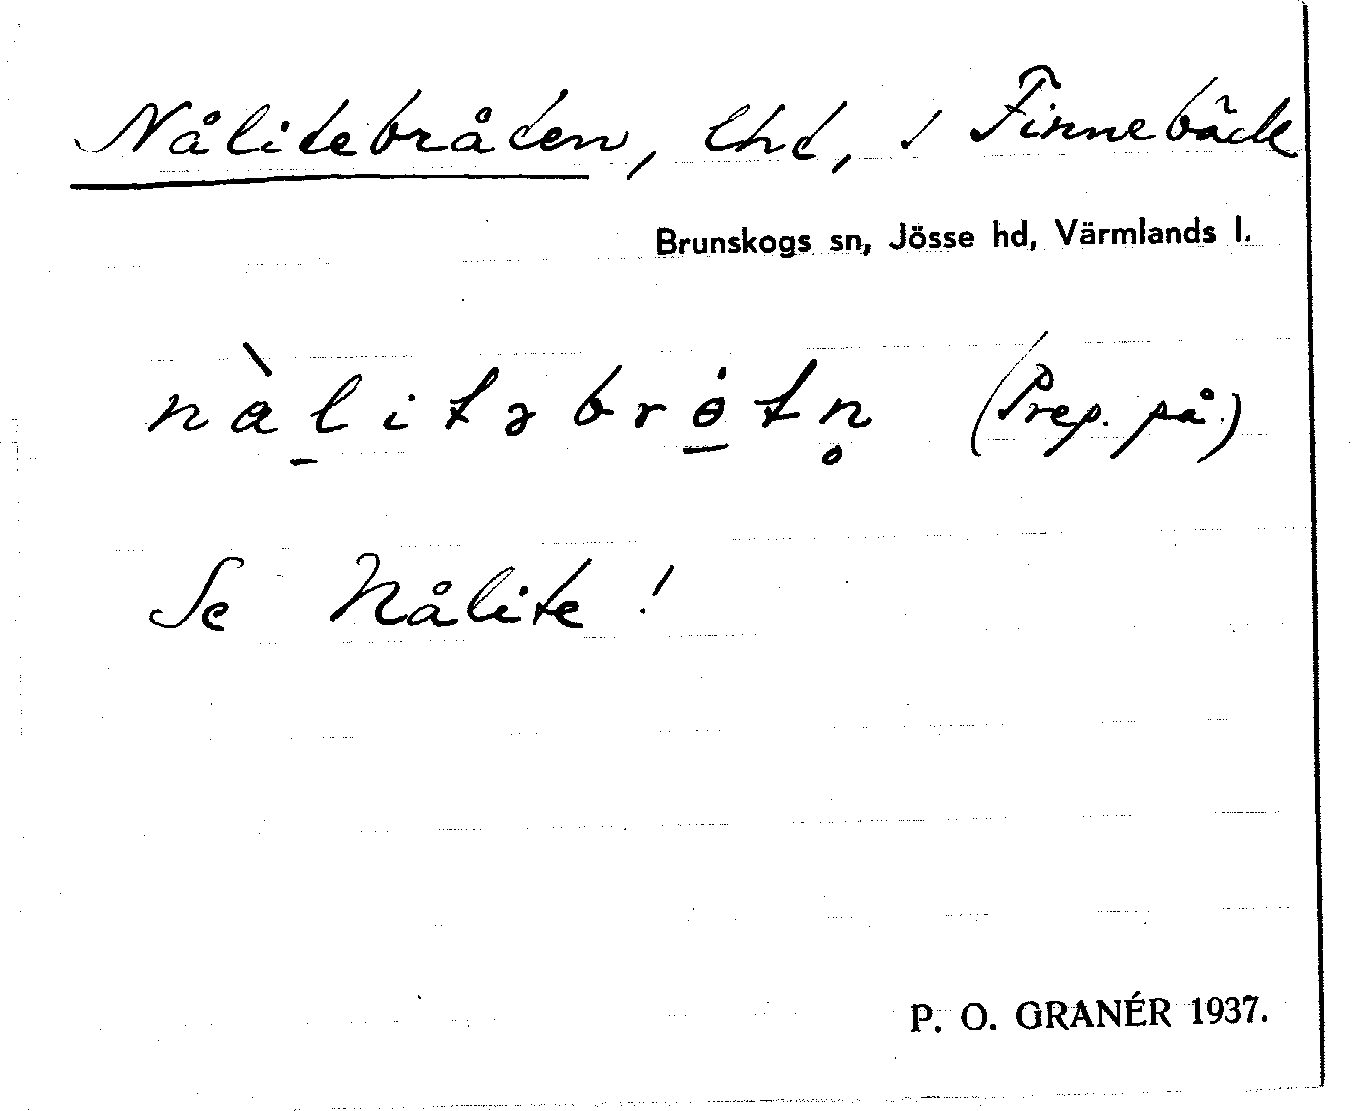 Nålitebråten, lhd, i Finnebäck
Brunskogs sn, Jösse hd, Värmlands l.
(Prep. på.)
Se Nålite!
P. O. GRANÉR 1937.